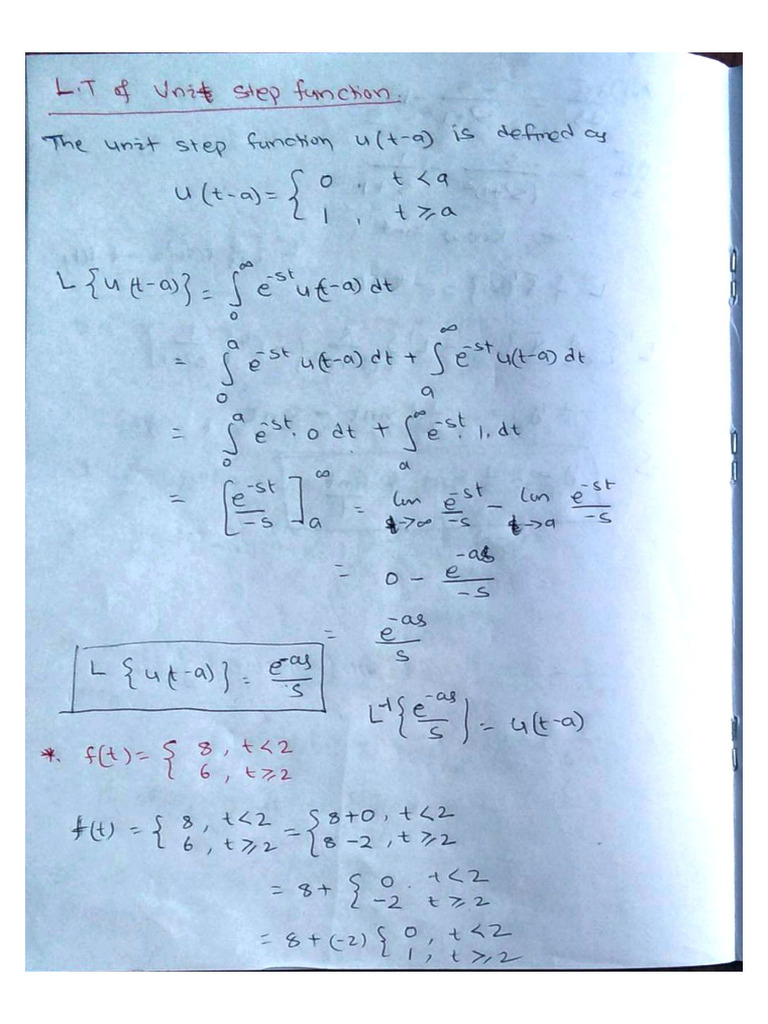 L.T of Unit step function.
The unit step function u(t-a) is defined as
u(t-a) = { 0, t < a
1, t ≥ a
L{u(t-a)} = ∫₀^∞ e^{-st} u(t-a) dt
= ∫₀^a e^{-st} u(t-a) dt + ∫ₐ^∞ e^{-st} u(t-a) dt
= ∫₀^a e^{-st}. 0 dt + ∫ₐ^∞ e^{-st}. 1. dt
= [e^{-st}/-s]ₐ^∞ = lim t→∞ e^{-st}/-s - lim t→a e^{-st}/-s
= 0 - e^{-as}/-s
= e^{-as}/s
L{u(t-a)} = e^{-as}/s
L^{-1}{e^{-as}/s} = u(t-a)
*. f(t) = { 8, t<2
6, t≥2
f(t) = { 8, t<2 = { 8+0, t<2
6, t≥2 8-2, t≥2
= 8 + { 0. t<2
-2 t≥2
= 8 + (-2) { 0, t<2
1, t≥2